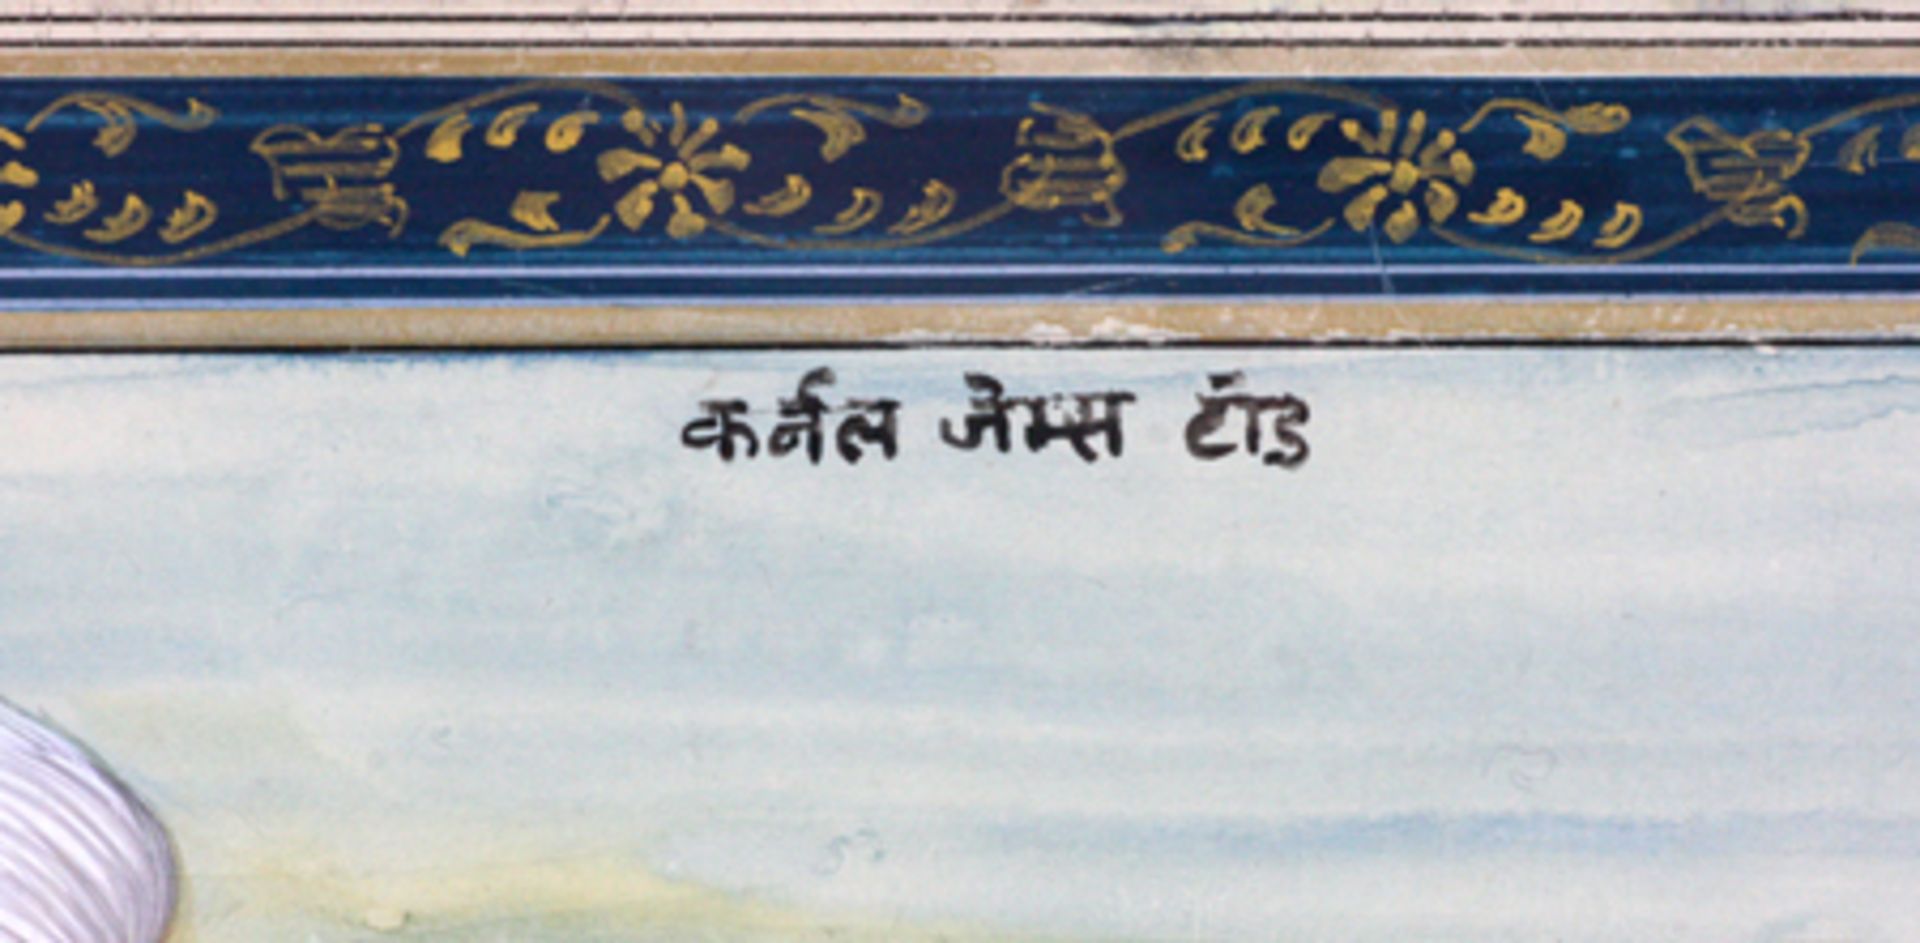 कर्नल जेम्स टॉड